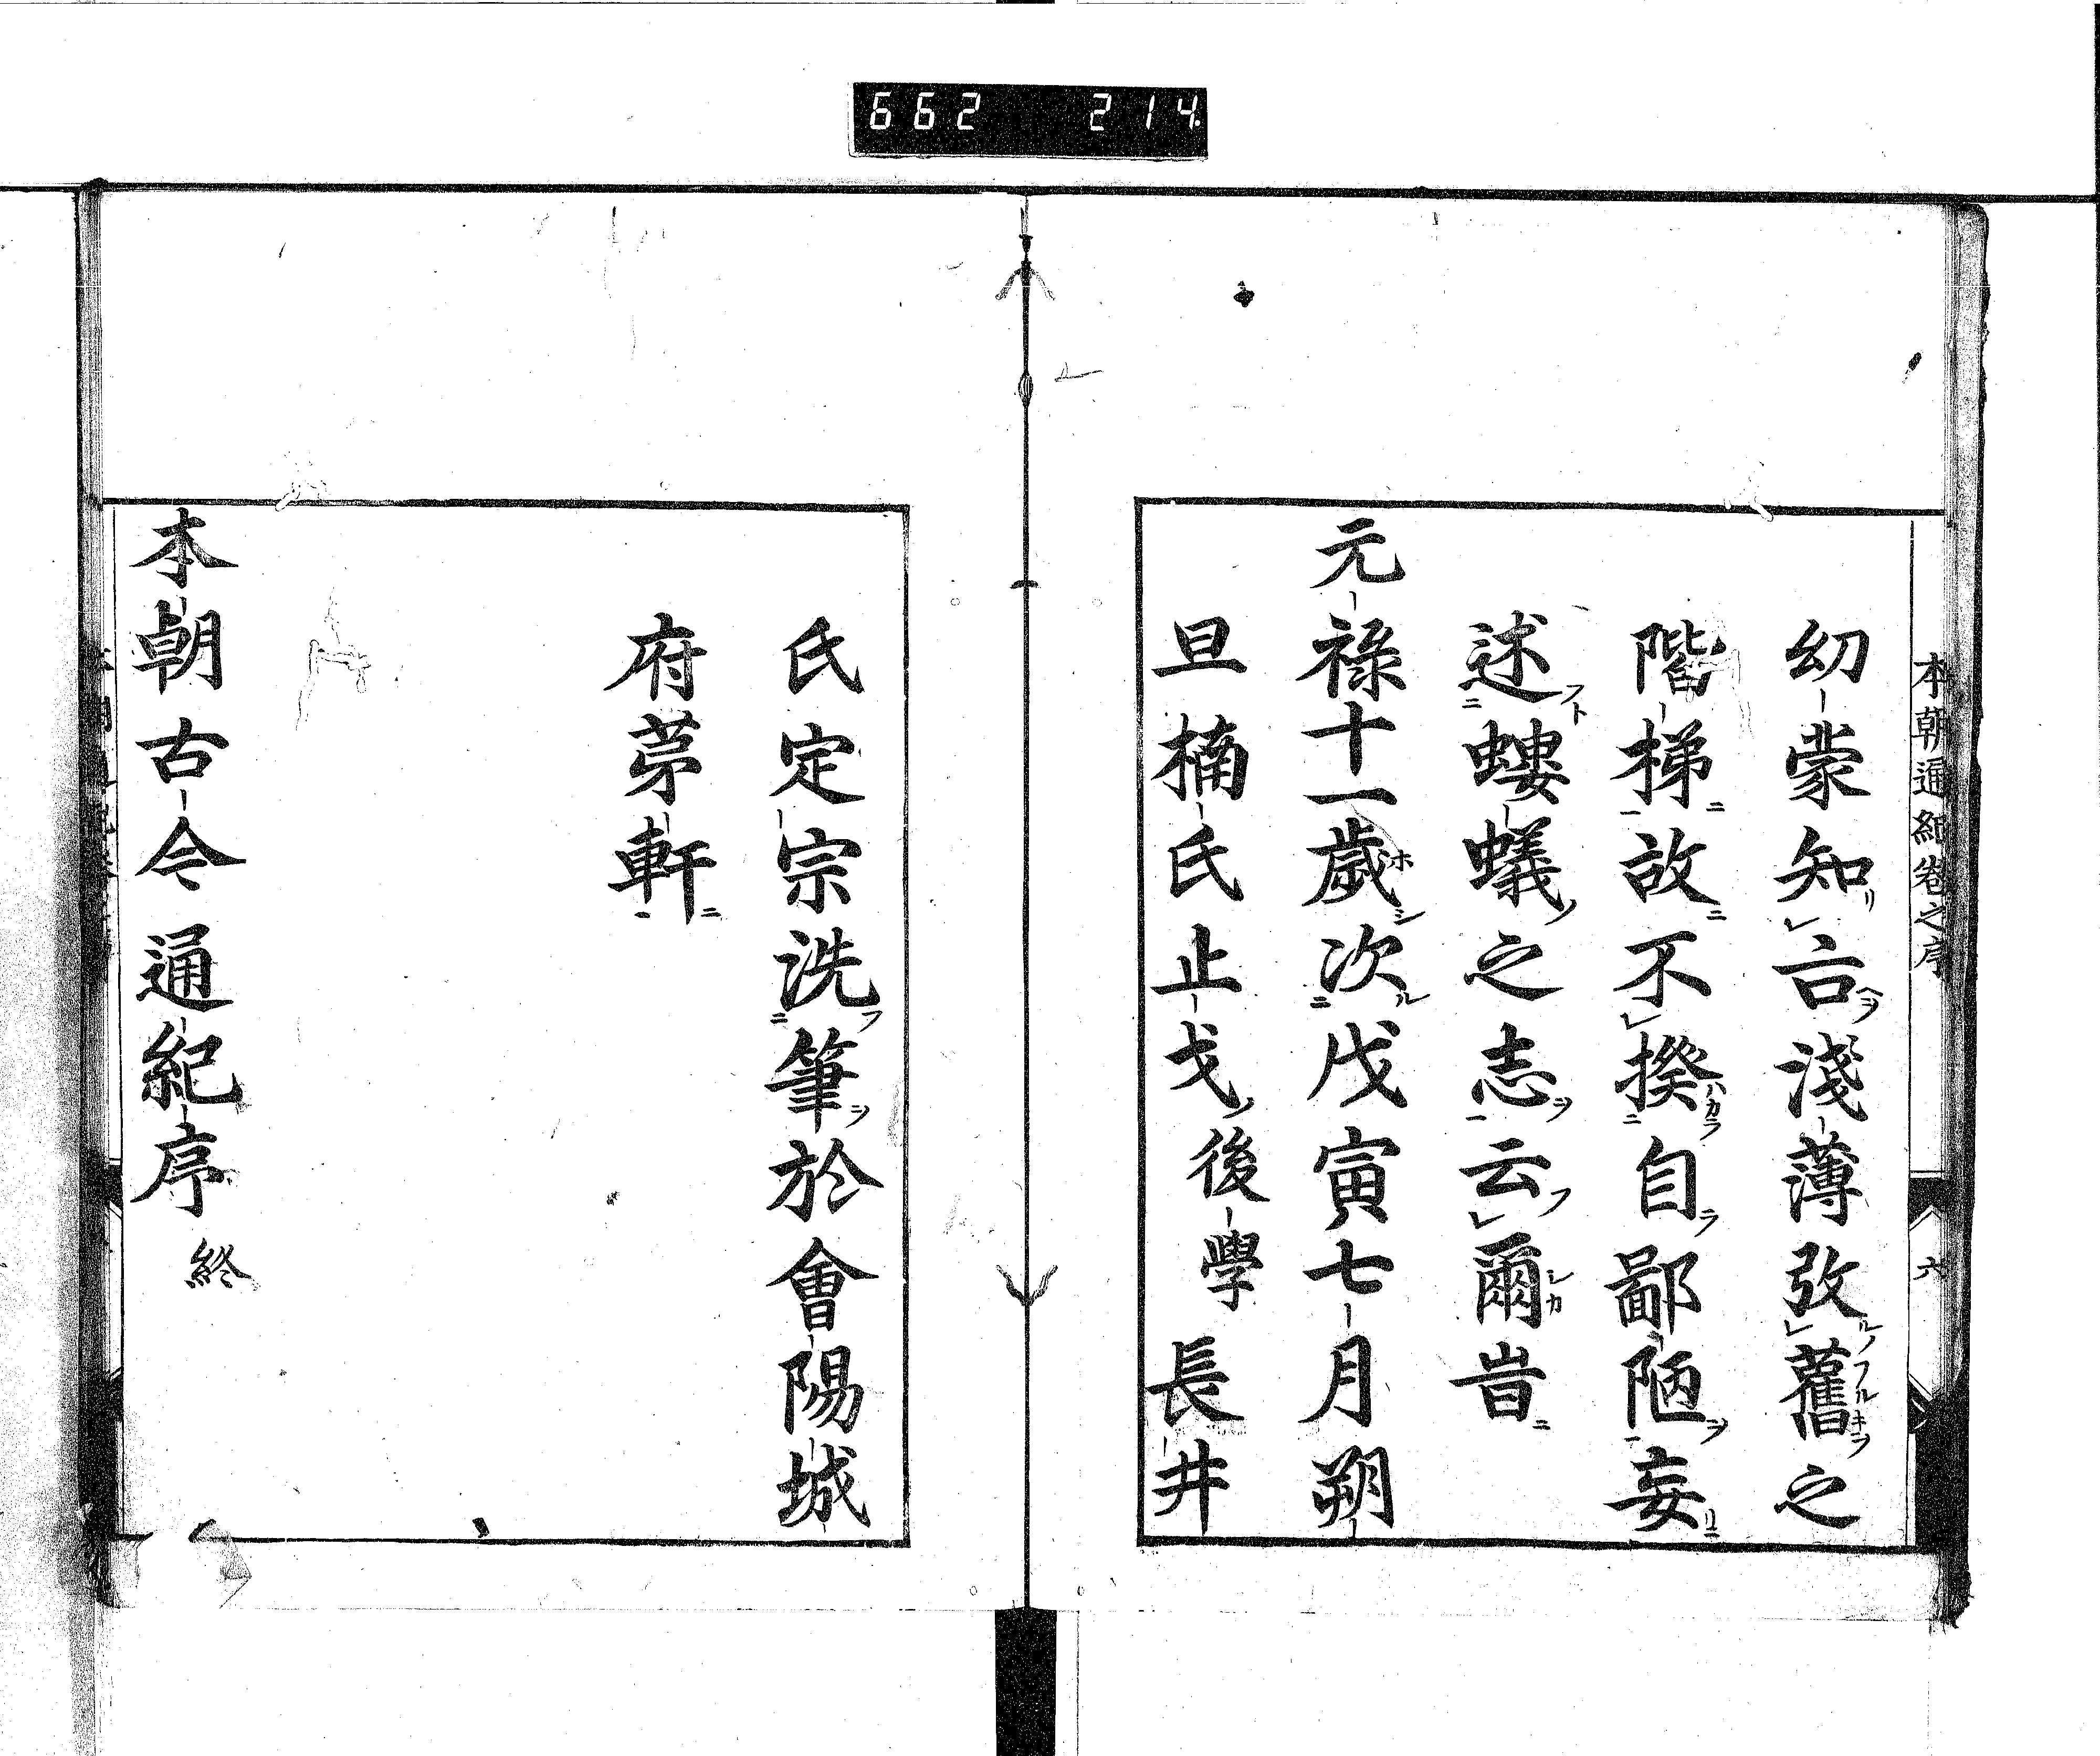 662 214
本朝通紀卷之序 六
幼蒙知言淺薄攷舊之
階梯故不揆自鄙陋妄
述螻蟻之志云爾旹
元祿十一歲次戊寅七月朔
旦楠氏止戈後學 長井
氏定宗洗筆於會陽城
府茅軒
本朝古今通紀序終